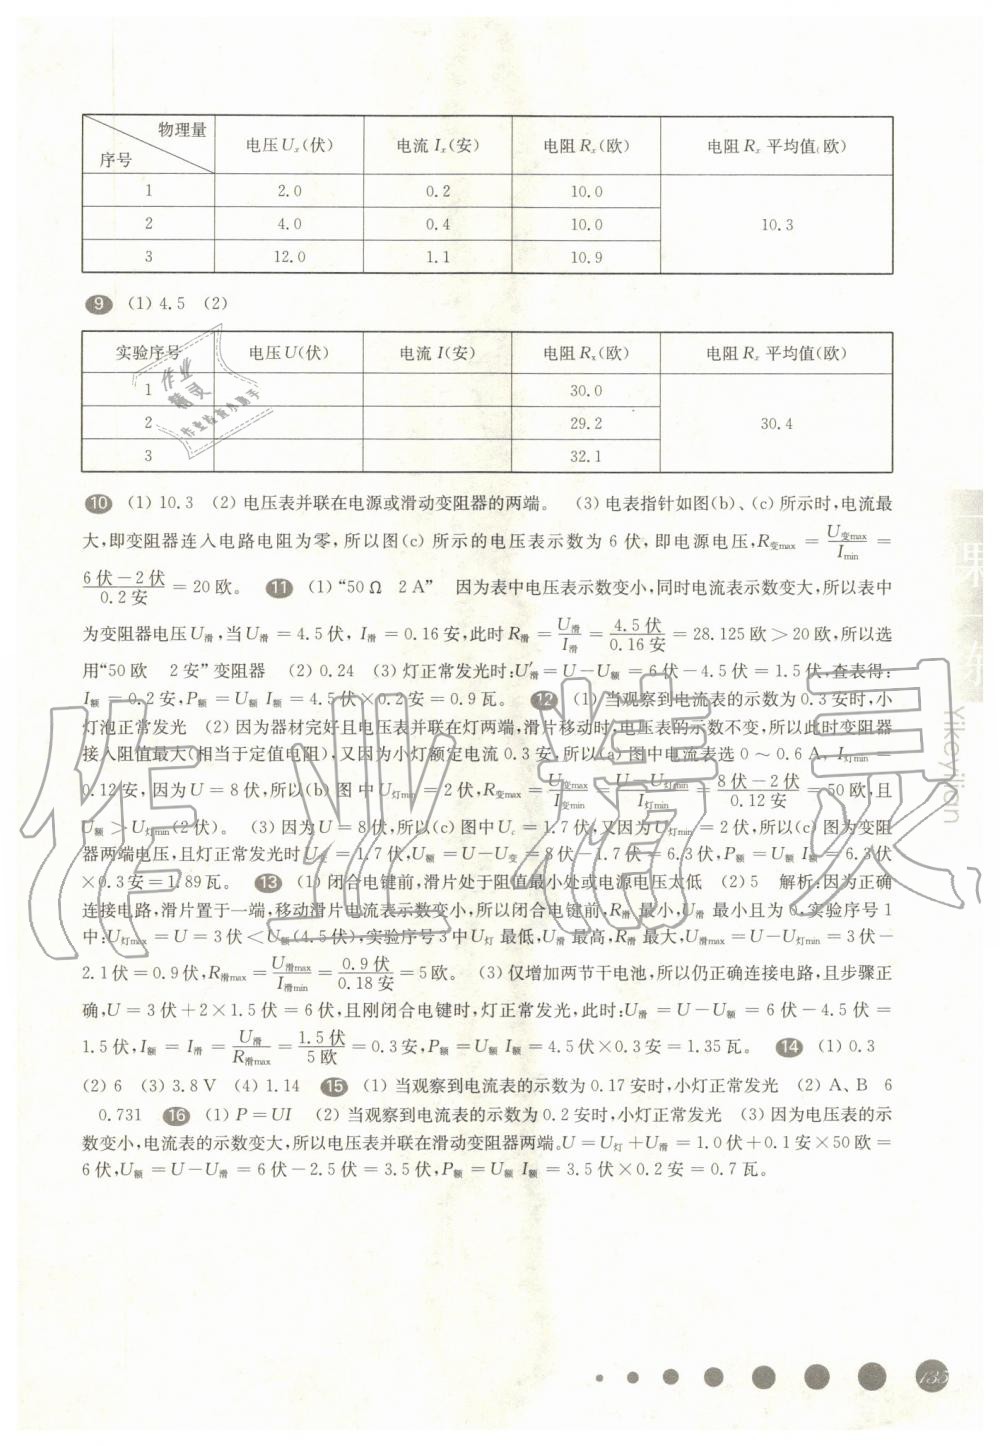 物理量
序号
电压 Uₓ(伏) 电流 Iₓ(安) 电阻 Rₓ(欧) 电阻 Rₓ 平均值(欧)
1 2.0 0.2 10.0
2 4.0 0.4 10.0 10.3
3 12.0 1.1 10.9
9 (1) 4.5 (2)
实验序号 电压U(伏) 电流 I(安) 电阻 Rₓ(欧) 电阻 Rₓ 平均值(欧)
1 30.0
2 29.2 30.4
3 32.1
10 (1) 10.3 (2) 电压表并联在电源或滑动变阻器的两端。 (3) 电表指针如图(b)、(c)所示时,电流最
大,即变阻器连入电路电阻为零,所以图(c)所示的电压表示数为 6 伏,即电源电压,R变max = U变max/Imin =
(6伏-2伏)/0.2安 = 20 欧。 11 (1) “50 Ω 2 A” 因为表中电压表示数变小,同时电流表示数变大,所以表中
为变阻器电压U滑,当U滑 = 4.5伏, I滑 = 0.16安,此时R滑 = U滑/I滑 = 4.5伏/0.16安 = 28.125欧>20欧,所以选
用“50欧 2安”变阻器 (2) 0.24 (3) 灯正常发光时:U′滑=U-U额=6伏-4.5伏=1.5伏,查表得:
I额=0.2安,P额=U额 I额=4.5伏×0.2安=0.9瓦。 12 (1) 当观察到电流表的示数为0.3安时,小
灯泡正常发光 (2) 因为器材完好且电压表并联在灯两端,滑片移动时,电压表的示数不变,所以此时变阻器
接入阻值最大(相当于定值电阻),又因为小灯额定电流 0.3 安,所以(a)图中电流表选 0~0.6 A, I灯min =
0.12安,因为U=8伏,所以(b)图中U灯min=2伏,R变max = U变max/I变min = (U-U灯min)/I灯min = (8伏-2伏)/0.12安 = 50欧,且
U额>U灯min(2伏)。 (3) 因为U=8伏,所以(c)图中Uc=1.7伏,又因为U灯min=2伏,所以(c)图为变阻
器两端电压,且灯正常发光时U变=1.7伏,U额=U-U变=8伏-1.7伏=6.3伏,P额=U额 I额=6.3伏
×0.3安=1.89瓦。 13 (1) 闭合电键前,滑片处于阻值最小处或电源电压太低 (2) 5 解析:因为正确
连接电路,滑片置于一端,移动滑片电流表示数变小,所以闭合电键前,R滑 最小,U滑 最小且为 0,实验序号 1
中:U灯max=U=3伏<U额(4.5伏),实验序号3中U灯 最低,U滑 最高,R滑 最大,U滑max=U-U灯min=3伏-
2.1伏=0.9伏,R滑max = U滑max/I滑min = 0.9伏/0.18安 = 5欧。 (3) 仅增加两节干电池,所以仍正确连接电路,且步骤正
确,U=3伏+2×1.5伏=6伏,且刚闭合电键时,灯正常发光,此时:U滑=U-U额=6伏-4.5伏=
1.5伏,I额 = I滑 = U滑/R滑max = 1.5伏/5欧 = 0.3安,P额=U额 I额=4.5伏×0.3安=1.35瓦。 14 (1) 0.3
(2) 6 (3) 3.8 V (4) 1.14 15 (1) 当观察到电流表的示数为 0.17安时,小灯正常发光 (2) A、B 6
0.731 16 (1) P=UI (2) 当观察到电流表的示数为 0.2安时,小灯正常发光 (3) 因为电压表的示
数变小,电流表的示数变大,所以电压表并联在滑动变阻器两端。U=U灯+U滑=1.0伏+0.1安×50欧=
6伏,U额=U-U滑=6伏-2.5伏=3.5伏,P额=U额 I额=3.5伏×0.2安=0.7瓦。
作业精灵
作业
精灵
作业检查小助手
Yikeyilian
135